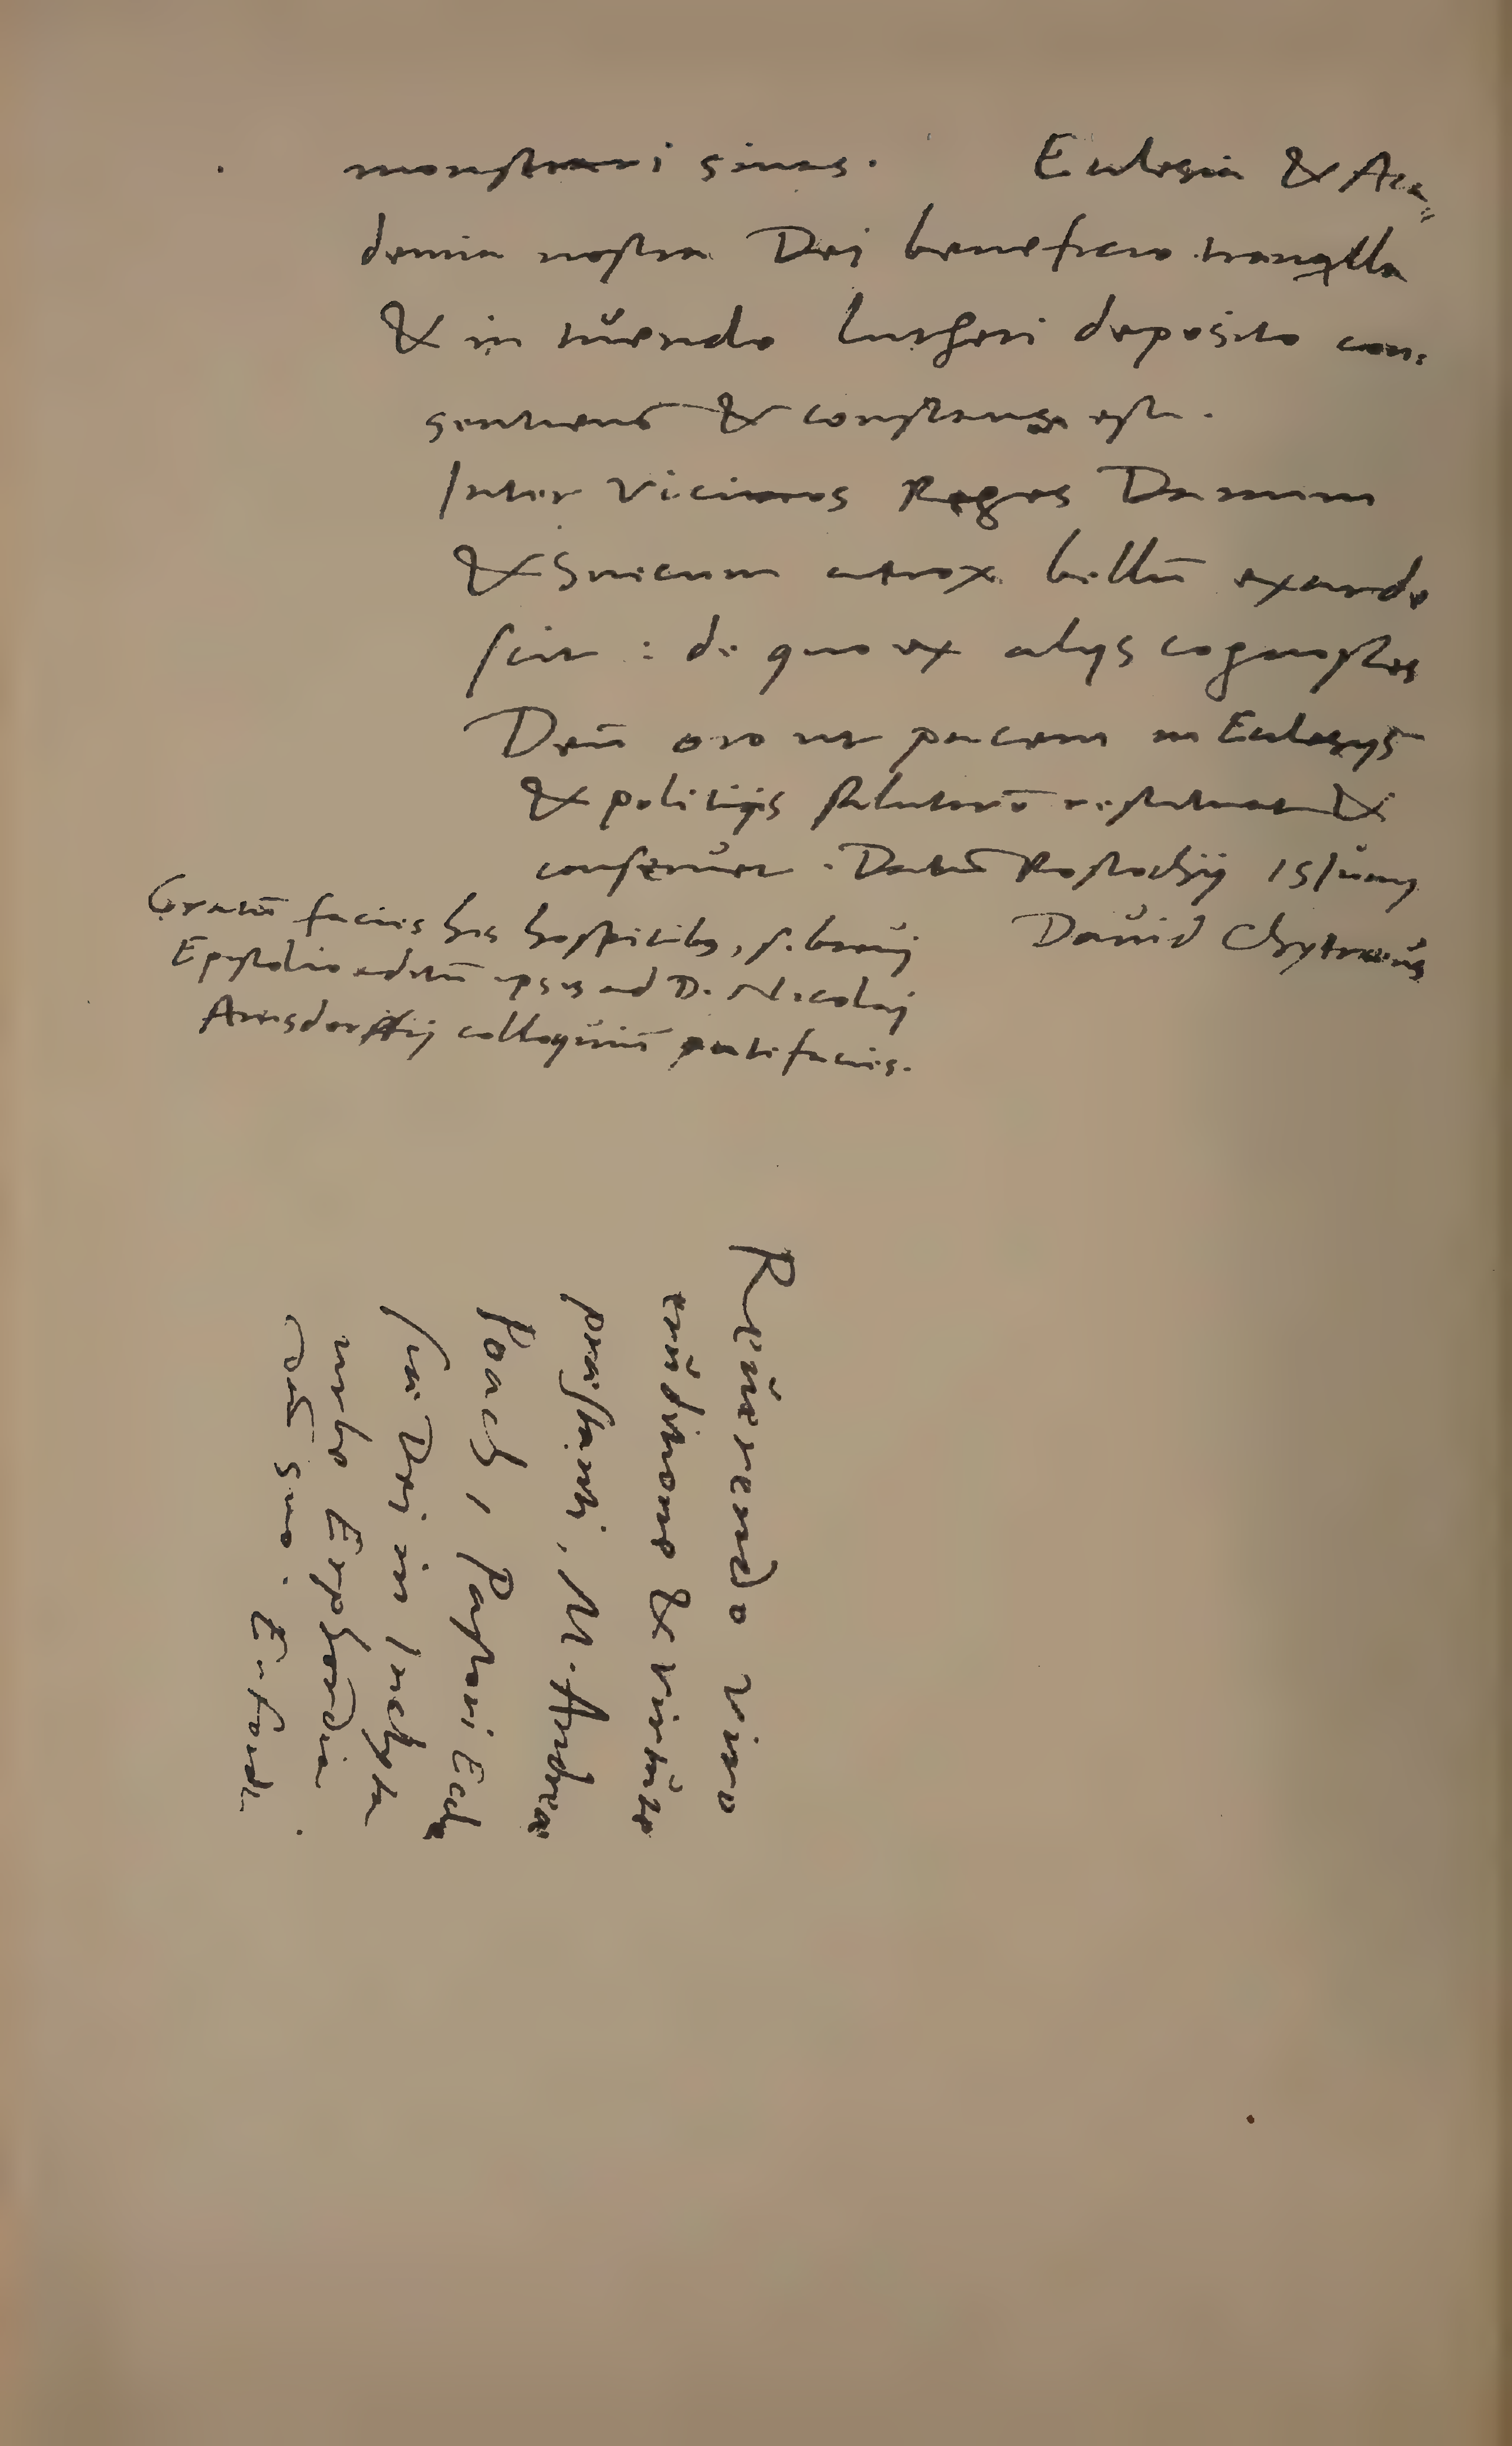 monstrari sinas. Ecclesia & Aca„
demia nostra Dei beneficio tranqlla
& in tŭendo Lutheri deposito con:
sentiens & constans est.
Inter vicinos Reges Danum
& Suecum atrox bellū exarde
scit : de quo ex alijs cognosces
Deū oro ut pacem in Ecclesijs
& politijs salutarē restituat &
conserŭet. Datū Rostochij 15 Iŭnij
Daŭid Chytraeŭs
Gratū facies his hospitibs, si breŭj
Epistolio aditū ipsis ad D. Nicolaj
Amsdorffij colloqŭiū patefacies.
Reŭerendo viro
erŭditione & virtŭte
praestanti, M. Andreae
Poach, Pastori Eccle
siae Dei in Inclyta
urbe Erphordia
suo. Erford.